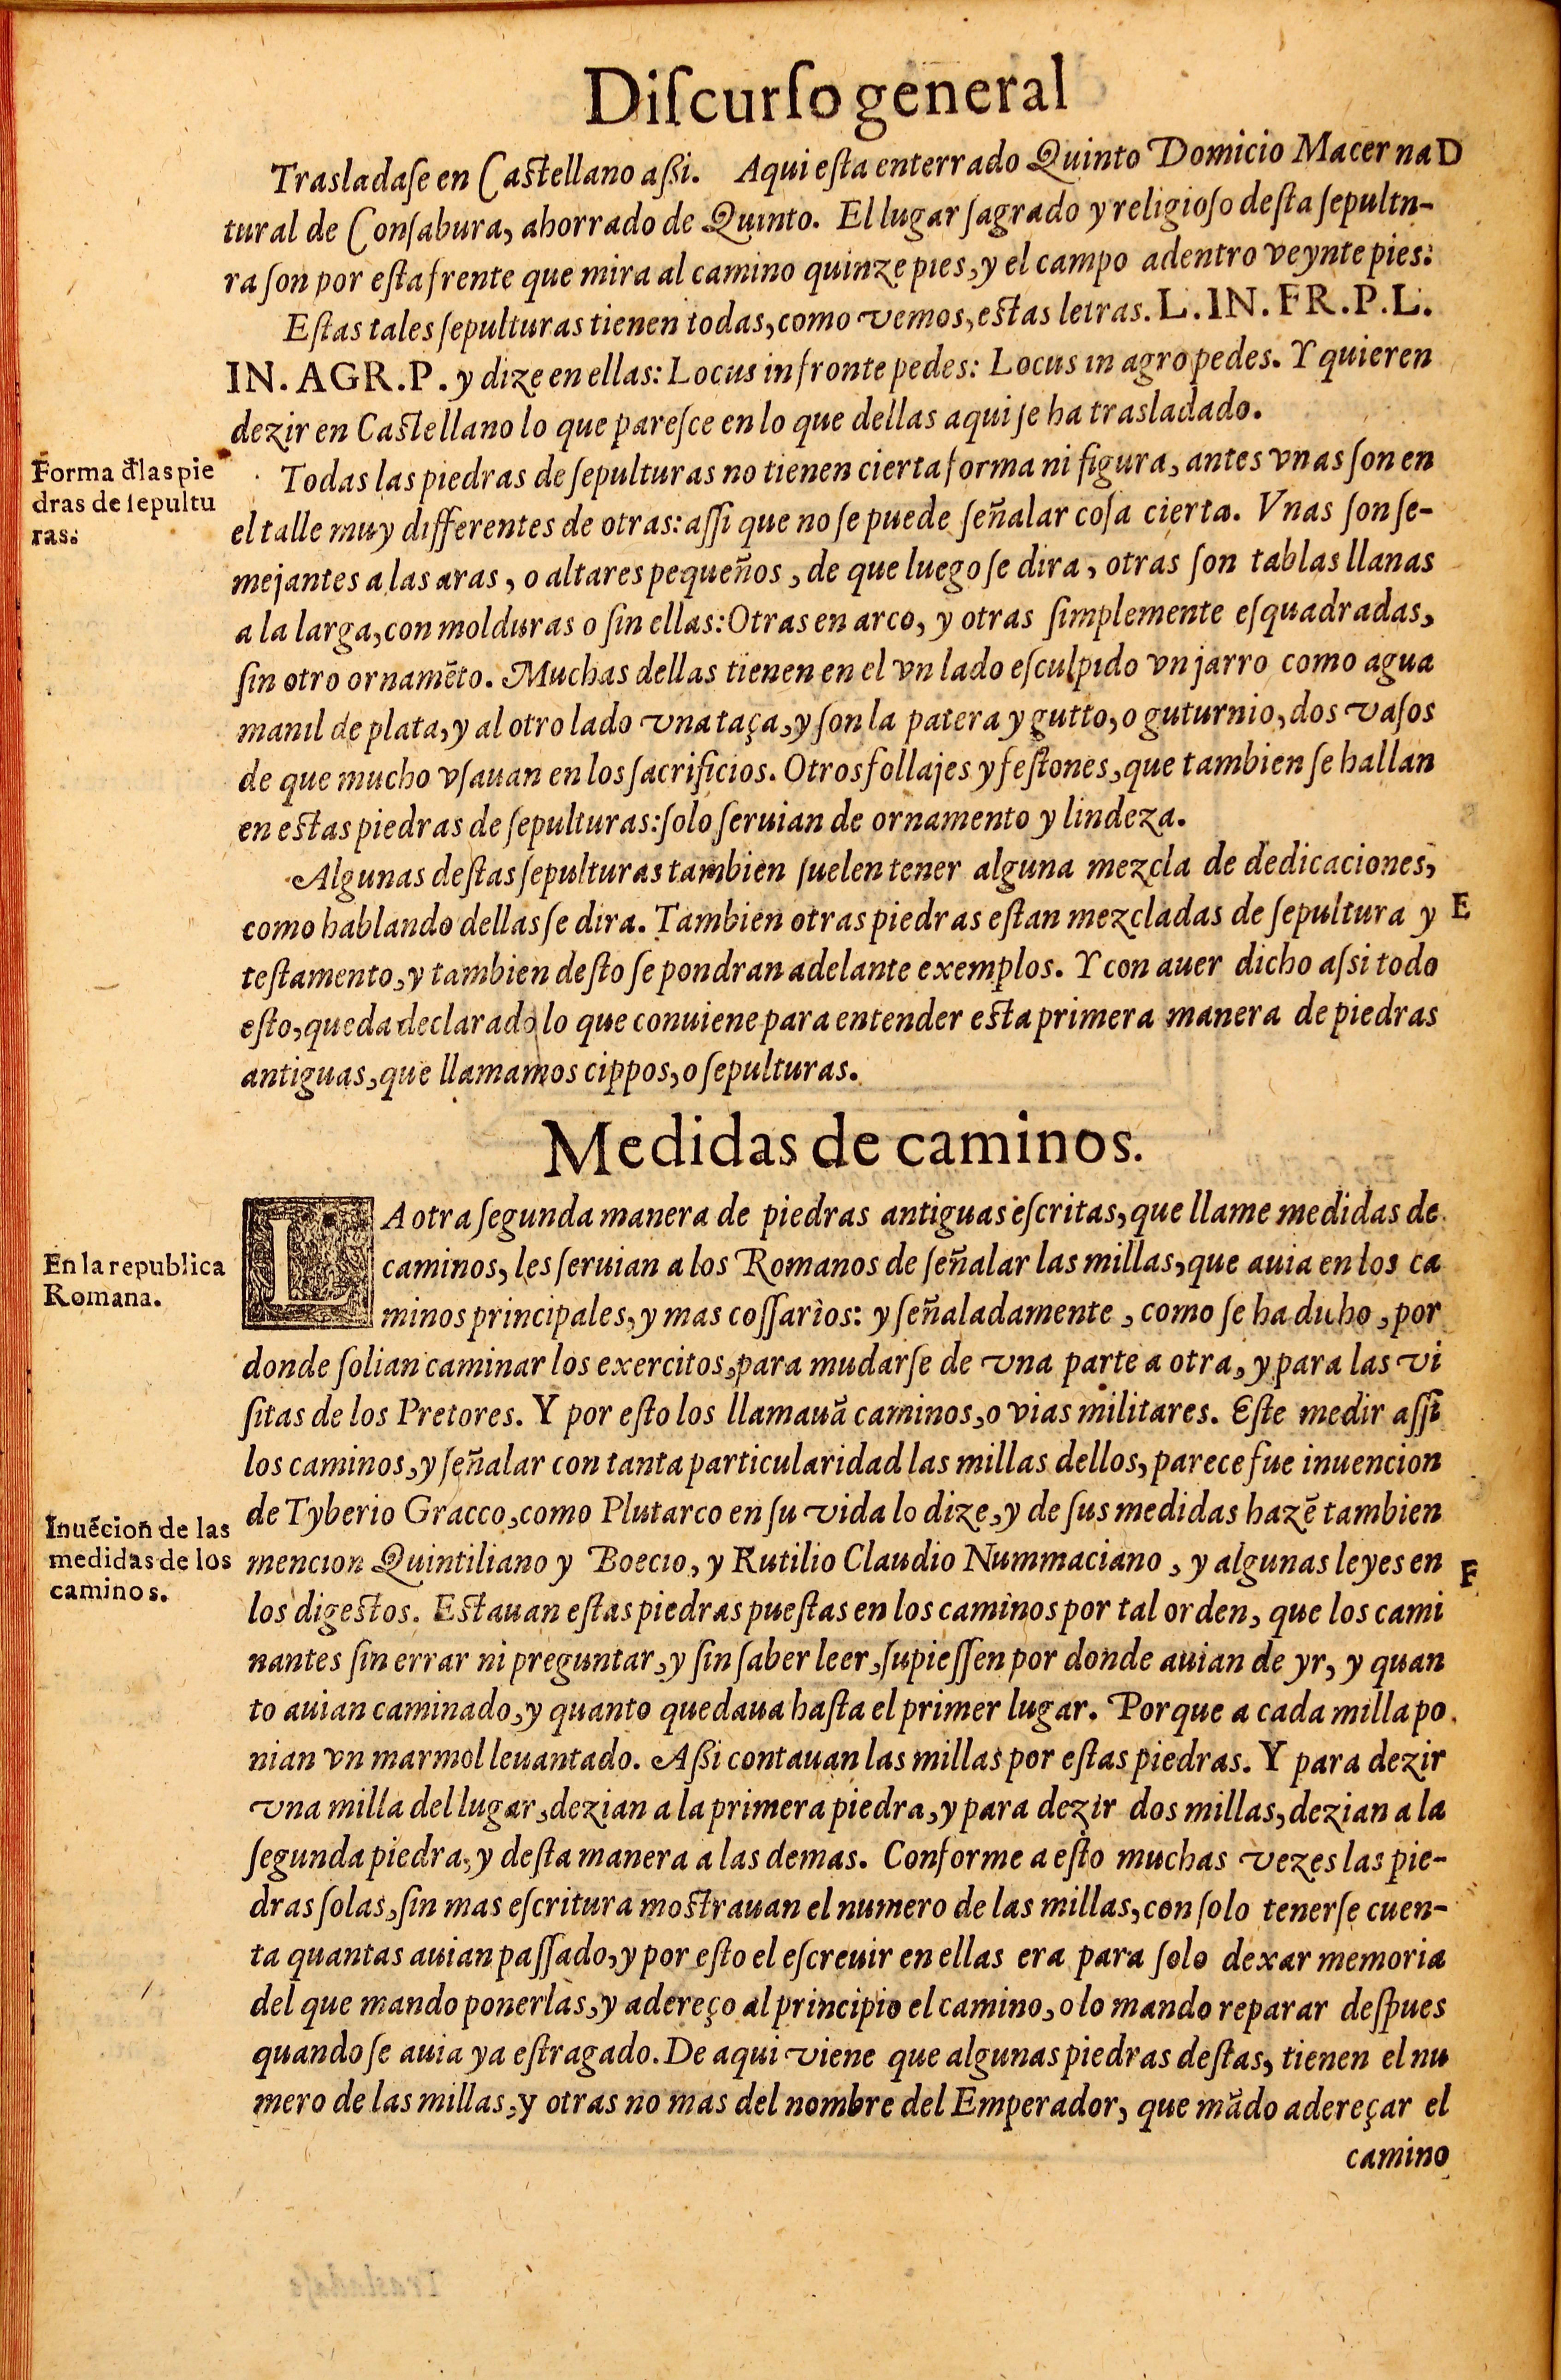 Diſcurſo general
Trasladaſe en Caſtellano aßi. Aqui eſta enterrado Quinto Domicio Macer na D
tural de Conſabura, ahorrado de Quinto. El lugar ſagrado y religioſo deſta ſepultn-
ra ſon por eſta frente que mira al camino quinze pies, y el campo adentro veynte pies:
Eſtas tales ſepulturas tienen todas, como vemos, eſtas letras. L. IN. FR. P. L.
IN. AGR. P. y dize en ellas: Locus in fronte pedes: Locus in agro pedes. Y quieren
dezir en Caſtellano lo que pareſce en lo que dellas aqui ſe ha trasladado.
Forma đlas pie
dras de ſepultu
ras.
Todas las piedras de ſepulturas no tienen cierta forma ni figura, antes vnas ſon en
el talle muy differentes de otras: aſſi que no ſe puede ſeñalar coſa cierta. Vnas ſon ſe-
mejantes a las aras, o altares pequeños, de que luego ſe dira, otras ſon tablas llanas
a la larga, con molduras o ſin ellas: Otras en arco, y otras ſimplemente eſquadradas,
ſin otro ornamẽto. Muchas dellas tienen en el vn lado eſculpido vn jarro como agua
manil de plata, y al otro lado vna taça, y ſon la patera y gutto, o guturnio, dos vaſos
de que mucho vſauan en los ſacrificios. Otros follajes y feſtones, que tambien ſe hallan
en eſtas piedras de ſepulturas: ſolo ſeruian de ornamento y lindeza.
Algunas deſtas ſepulturas tambien ſuelen tener alguna mezcla de dedicaciones,
como hablando dellas ſe dira. Tambien otras piedras eſtan mezcladas de ſepultura y E
teſtamento, y tambien deſto ſe pondran adelante exemplos. Y con auer dicho aſsi todo
eſto, queda declarado lo que conuiene para entender eſta primera manera de piedras
antiguas, que llamamos cippos, o ſepulturas.
Medidas de caminos.
LA otra ſegunda manera de piedras antiguas eſcritas, que llame medidas de
caminos, les ſeruian a los Romanos de ſeñalar las millas, que auia en los ca
minos principales, y mas coſſarios: y ſeñaladamente, como ſe ha dicho, por
En la republica
Romana.
donde ſolian caminar los exercitos, para mudarſe de vna parte a otra, y para las vi
ſitas de los Pretores. Y por eſto los llamauã caminos, o vias militares. Eſte medir aſſi
los caminos, y ſeñalar con tanta particularidad las millas dellos, parece fue inuencion
de Tyberio Gracco, como Plutarco en ſu vida lo dize, y de ſus medidas hazẽ tambien
Inuẽcion de las
medidas de los
caminos.
mencion Quintiliano y Boecio, y Rutilio Claudio Nummaciano, y algunas leyes en F
los digeſtos. Eſtauan eſtas piedras pueſtas en los caminos por tal orden, que los cami
nantes ſin errar ni preguntar, y ſin ſaber leer, ſupieſſen por donde auian de yr, y quan
to auian caminado, y quanto quedaua haſta el primer lugar. Porque a cada milla po
nian vn marmol leuantado. Aßi contauan las millas por eſtas piedras. Y para dezir
vna milla del lugar, dezian a la primera piedra, y para dezir dos millas, dezian a la
ſegunda piedra, y deſta manera a las demas. Conforme a eſto muchas vezes las pie-
dras ſolas, ſin mas eſcritura moſtrauan el numero de las millas, con ſolo tenerſe cuen-
ta quantas auian paſſado, y por eſto el eſcreuir en ellas era para ſolo dexar memoria
del que mando ponerlas, y adereço al principio el camino, o lo mando reparar deſpues
quando ſe auia ya eſtragado. De aqui viene que algunas piedras deſtas, tienen el nu
mero de las millas, y otras no mas del nombre del Emperador, que mãdo adereçar el
camino